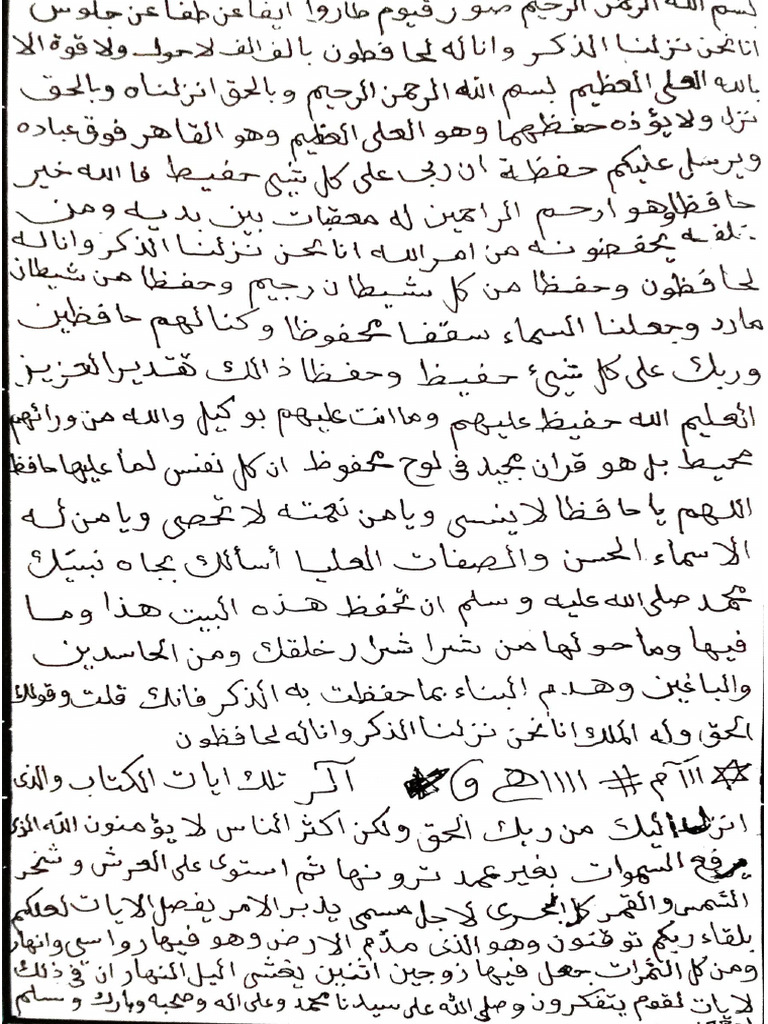 بسم الله الرحمن الرحيم صور قيوم طاروا ايفا عن طفا عن جلوس
انا نحن نزلنا الذكر وانا له لحافظون بالف الف لاحول ولا قوة الا
بالله العلى العظيم بسم الله الرحمن الرحيم وبالحق انزلناه وبالحق
نزل ولا يؤذه حفظهما وهو العلى العظيم وهو القاهر فوق عباده
ويرسل عليكم حفظة ان ربى على كل شيئ حفيظ فا الله خير
حافظا وهو ارحم الراحمين له معقبات بين يديه ومن
خلفه يحفضونه من امر الله انا نحن نزلنا الذكر وانا له
لحافظون وحفظا من كل شيطان رجيم وحفظا من شيطان
مارد وجعلنا السماء سقفا محفوظا وكنا لهم حافظين
وربك على كل شيئ حفيظ وحفظا ذالك تقدير العزيز
العليم الله حفيظ عليهم وما انت عليهم بوكيل والله من ورائهم
محيط بل هو قران مجيد فى لوح محفوظ ان كل نفس لما عليها حافظ
اللهم يا حافظا لا ينسى ويا من نعمته لا تحصى ويا من له
الاسماء الحسن والصفات العليا أسألك بجاه نبيك
محمد صلى الله عليه وسلم ان تحفظ هذه البيت هذا وما
فيها وما حولها من شرا شرار خلقك ومن الحاسدين
والباغين وهدم البناء بما حفظت به الذكر فانك قلت وقولك
الحق وله الملك انا نحن نزلنا الذكر وانا له لحافظون
آلمر تلك ايات الكتاب والذى
انزل اليك من ربك الحق ولكن اكثر الناس لا يؤمنون الله الذى
رفع السموات بغير عمد ترونها ثم استوى على العرش وسخر
الشمس والقمر كل يجرى لاجل مسمى يدبر الامر يفصل الايات لعلكم
بلقاء ربكم توقنون وهو الذى مدّم الارض وهو فيها رواسي وانهار
ومن كل الثمرات جعل فيها زوجين اثنين يغشى اليل النهار ان فى ذلك
لايات لقوم يتفكرون وصلى الله على سيدنا محمد وعلى اله وصحبه وبارك وسلم